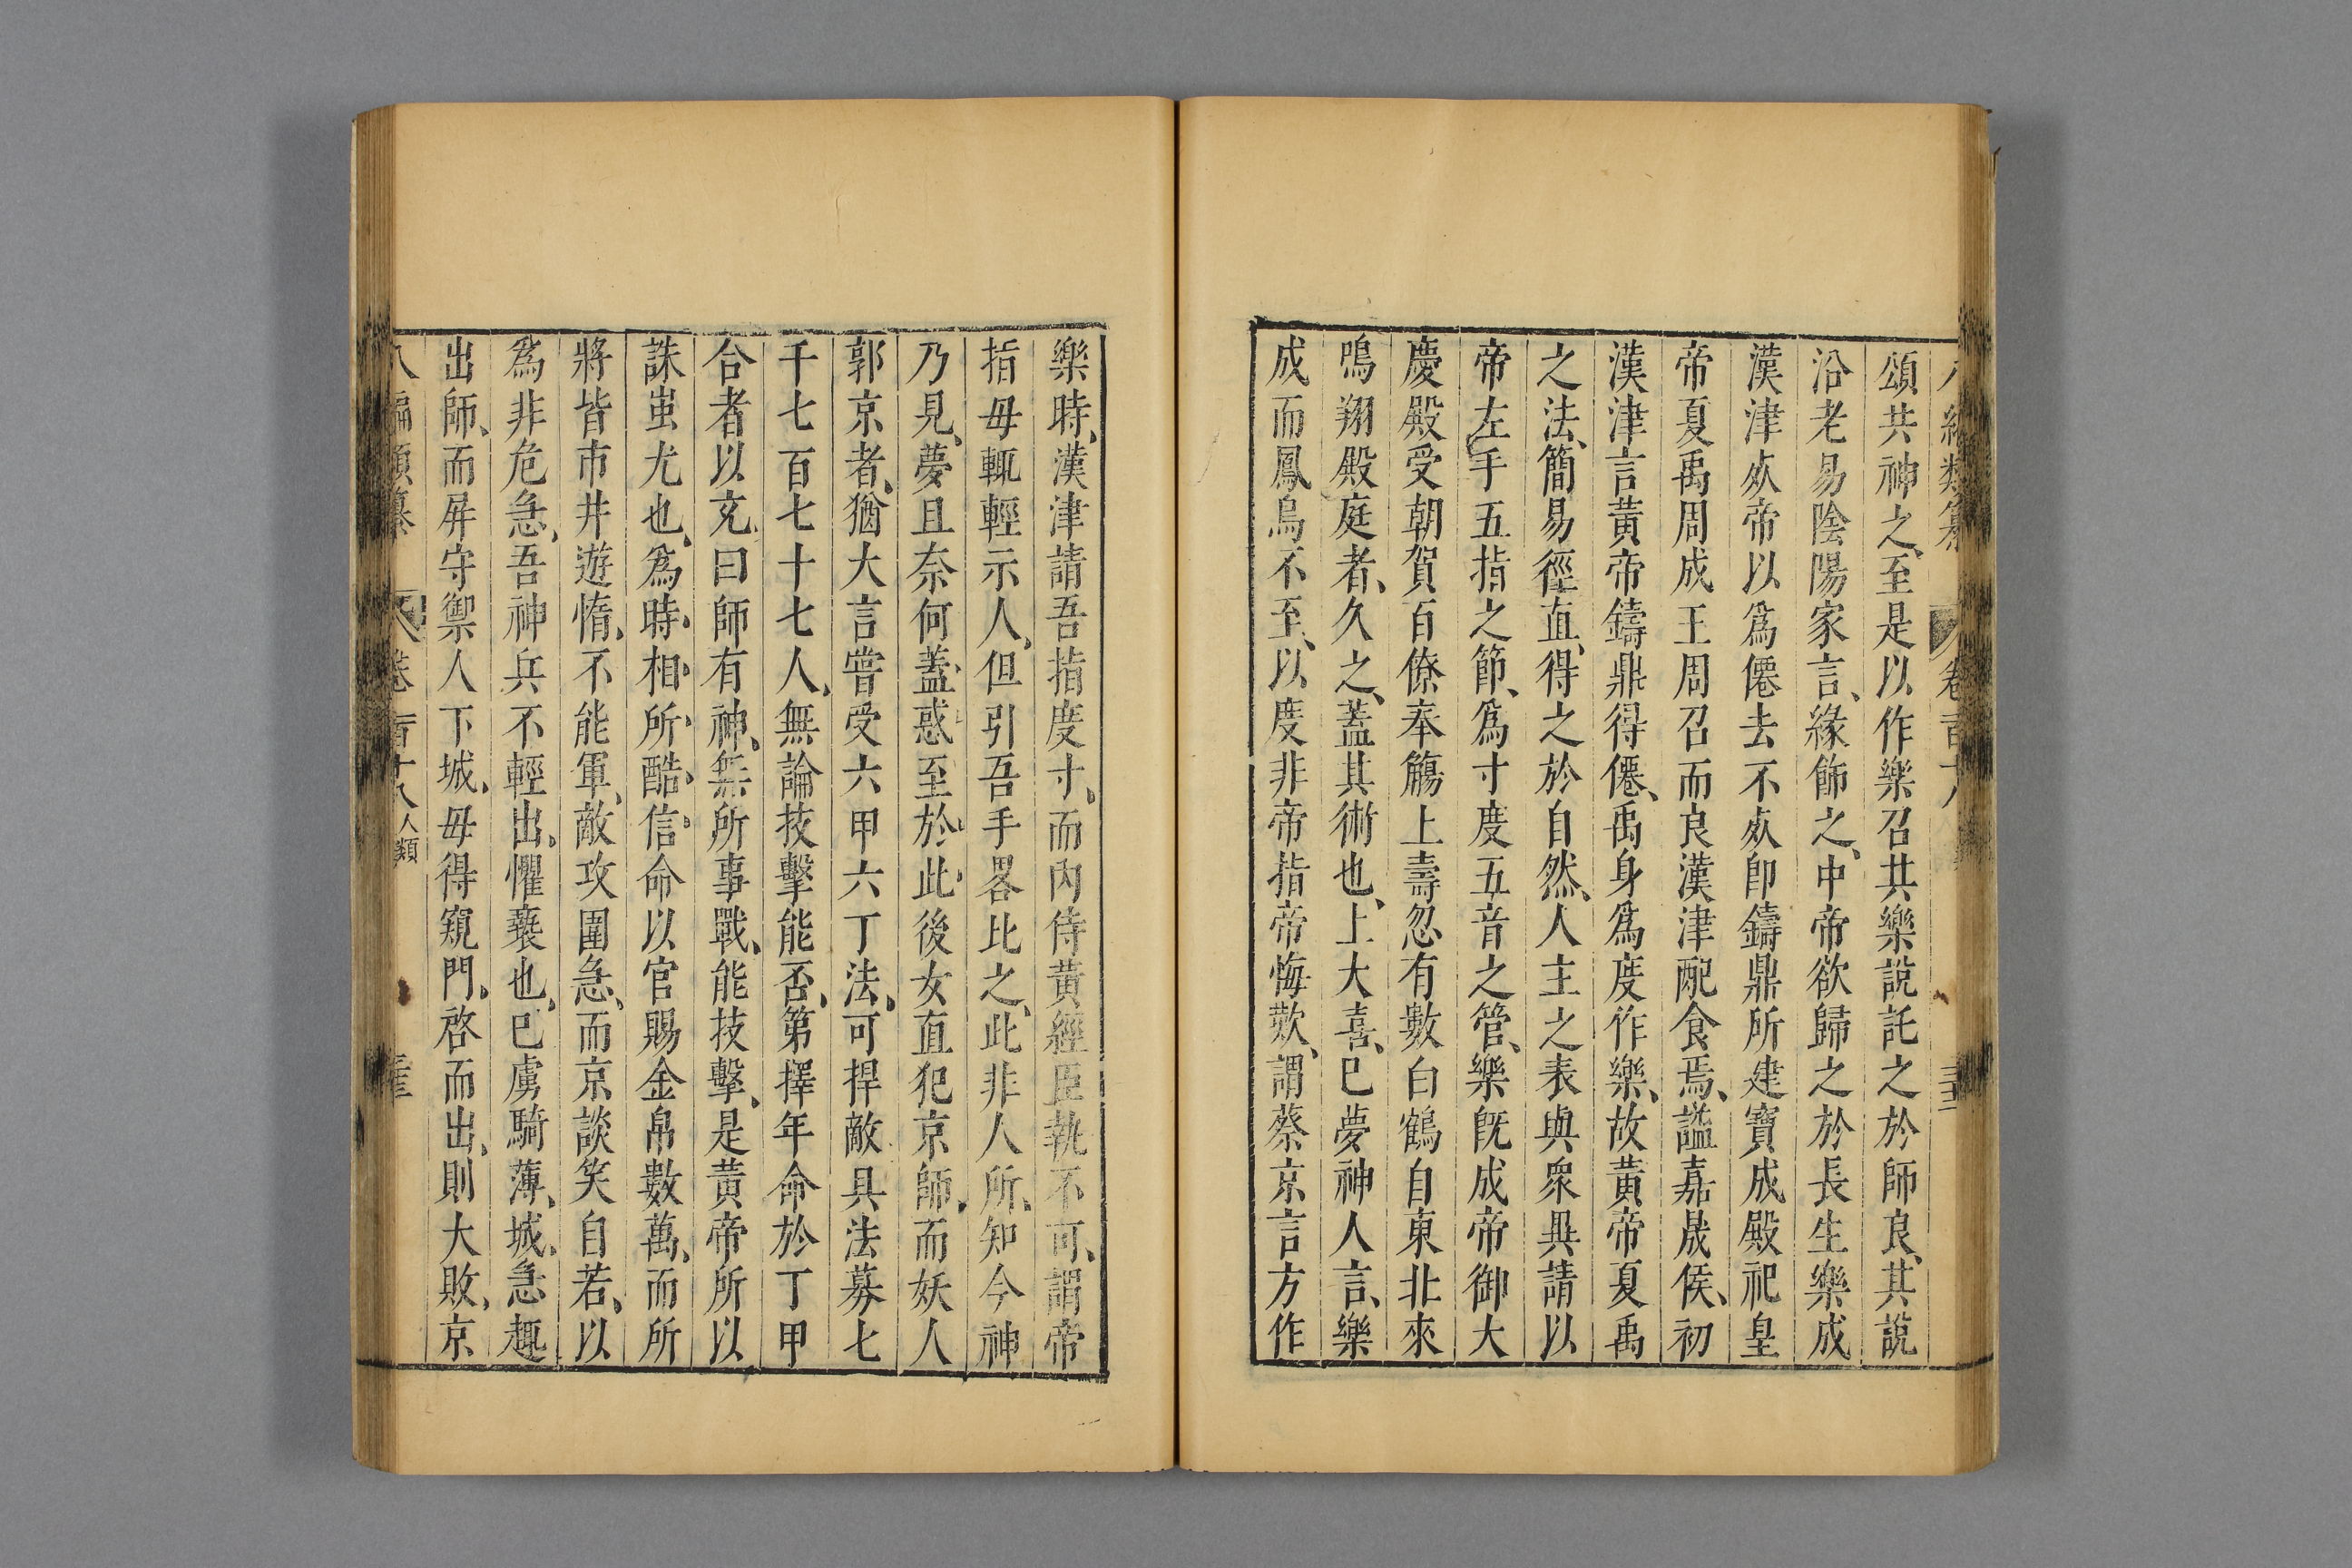 頌共神之、至是以作樂召共樂說託之於師良、其說
沿老易陰陽家言、緣飾之、中帝欲歸之於長生樂成
漢津㱙帝以爲僊去不㱙卽鑄鼎所建寶成殿祀皇
帝夏禹周成王周召而良漢津配食焉、謚嘉晟侯、初
漢津言黃帝鑄鼎得僊、禹身爲度作樂、故黃帝夏禹
之法、簡易徑直、得之於自然、人主之表與衆異請以
帝左手五指之節、爲寸度五音之管、樂旣成帝御大
慶殿受朝賀百僚奉觴上壽忽有數白鶴自東北來
鳴翔殿庭者、久之、蓋其術也、上大喜、巳夢神人言、樂
成而鳳鳥不至、以度非帝指帝悔歎、謂蔡京言方作
樂時、漢津請吾指度寸、而內侍黃經臣執不可、謂帝
指毋輒輕示人、但引吾手畧比之、此非人所、知今神
乃見、夢且奈何蓋惑至於此後女直犯京師、而妖人
郭京者、猶大言嘗受六甲六丁法、可捍敵具法募七
千七百七十七人、無論技擊能否、第擇年命於丁甲
合者以充、曰師有神、無所事戰、能技擊、是黃帝所以
誅蚩尤也、爲時相所酷信命以官賜金帛數萬、而所
將皆市井遊惰、不能軍、敵攻圍急、而京談笑自若、以
爲非危急、吾神兵不輕出、懼褻也、巳虜騎薄、城、急趣
出師、而屏守禦人下城、毋得窺門、啓而出、則大敗、京
八編類纂 卷一百十八 人類